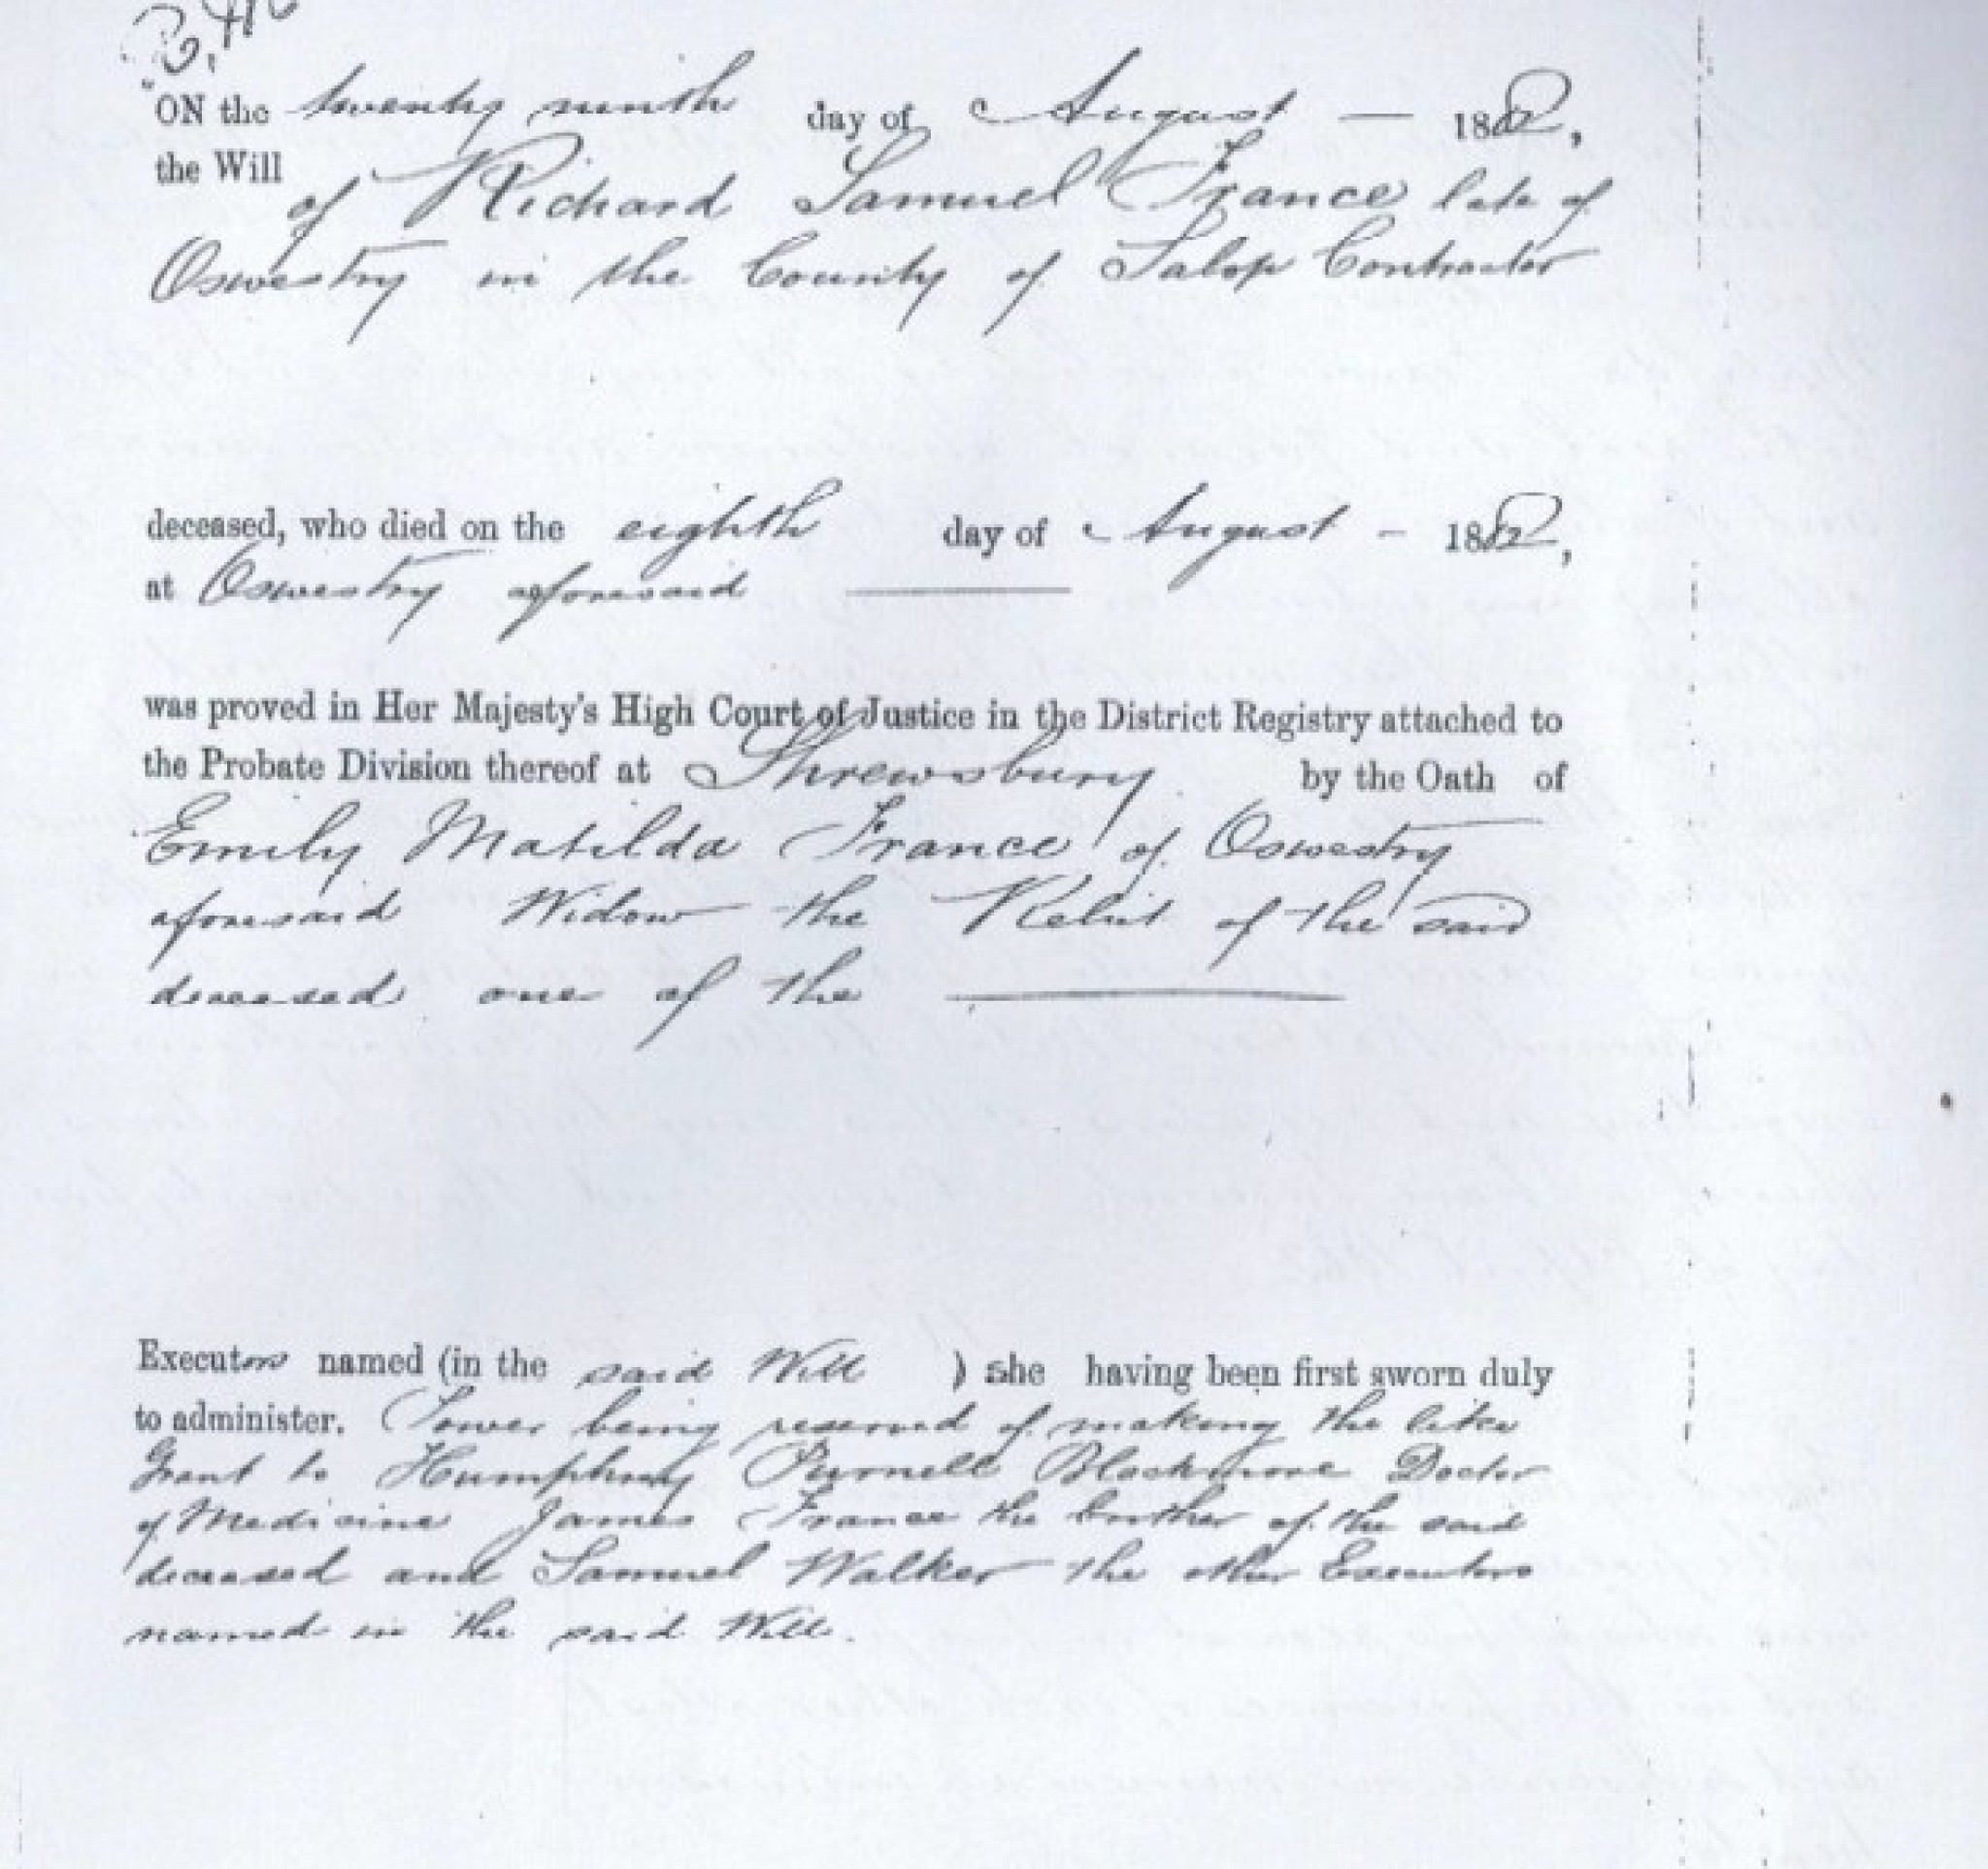 ON the twenty ninth day of August — 1882,
the Will
of Richard Samuel France late of
Oswestry in the County of Salop Contractor
deceased, who died on the eighth day of August - 1882,
at Oswestry aforesaid
was proved in Her Majesty's High Court of Justice in the District Registry attached to
the Probate Division thereof at Shrewsbury by the Oath of
Emily Matilda France of Oswestry
aforesaid Widow the Relict of the said
deceased one of the
Executors named (in the said Will ) she having been first sworn duly
to administer. Power being reserved of making the like
Grant to Humphrey Purnell Blackmore Doctor
of Medicine James France the brother of the said
deceased and Samuel Walker the other Executors
named in the said Will.